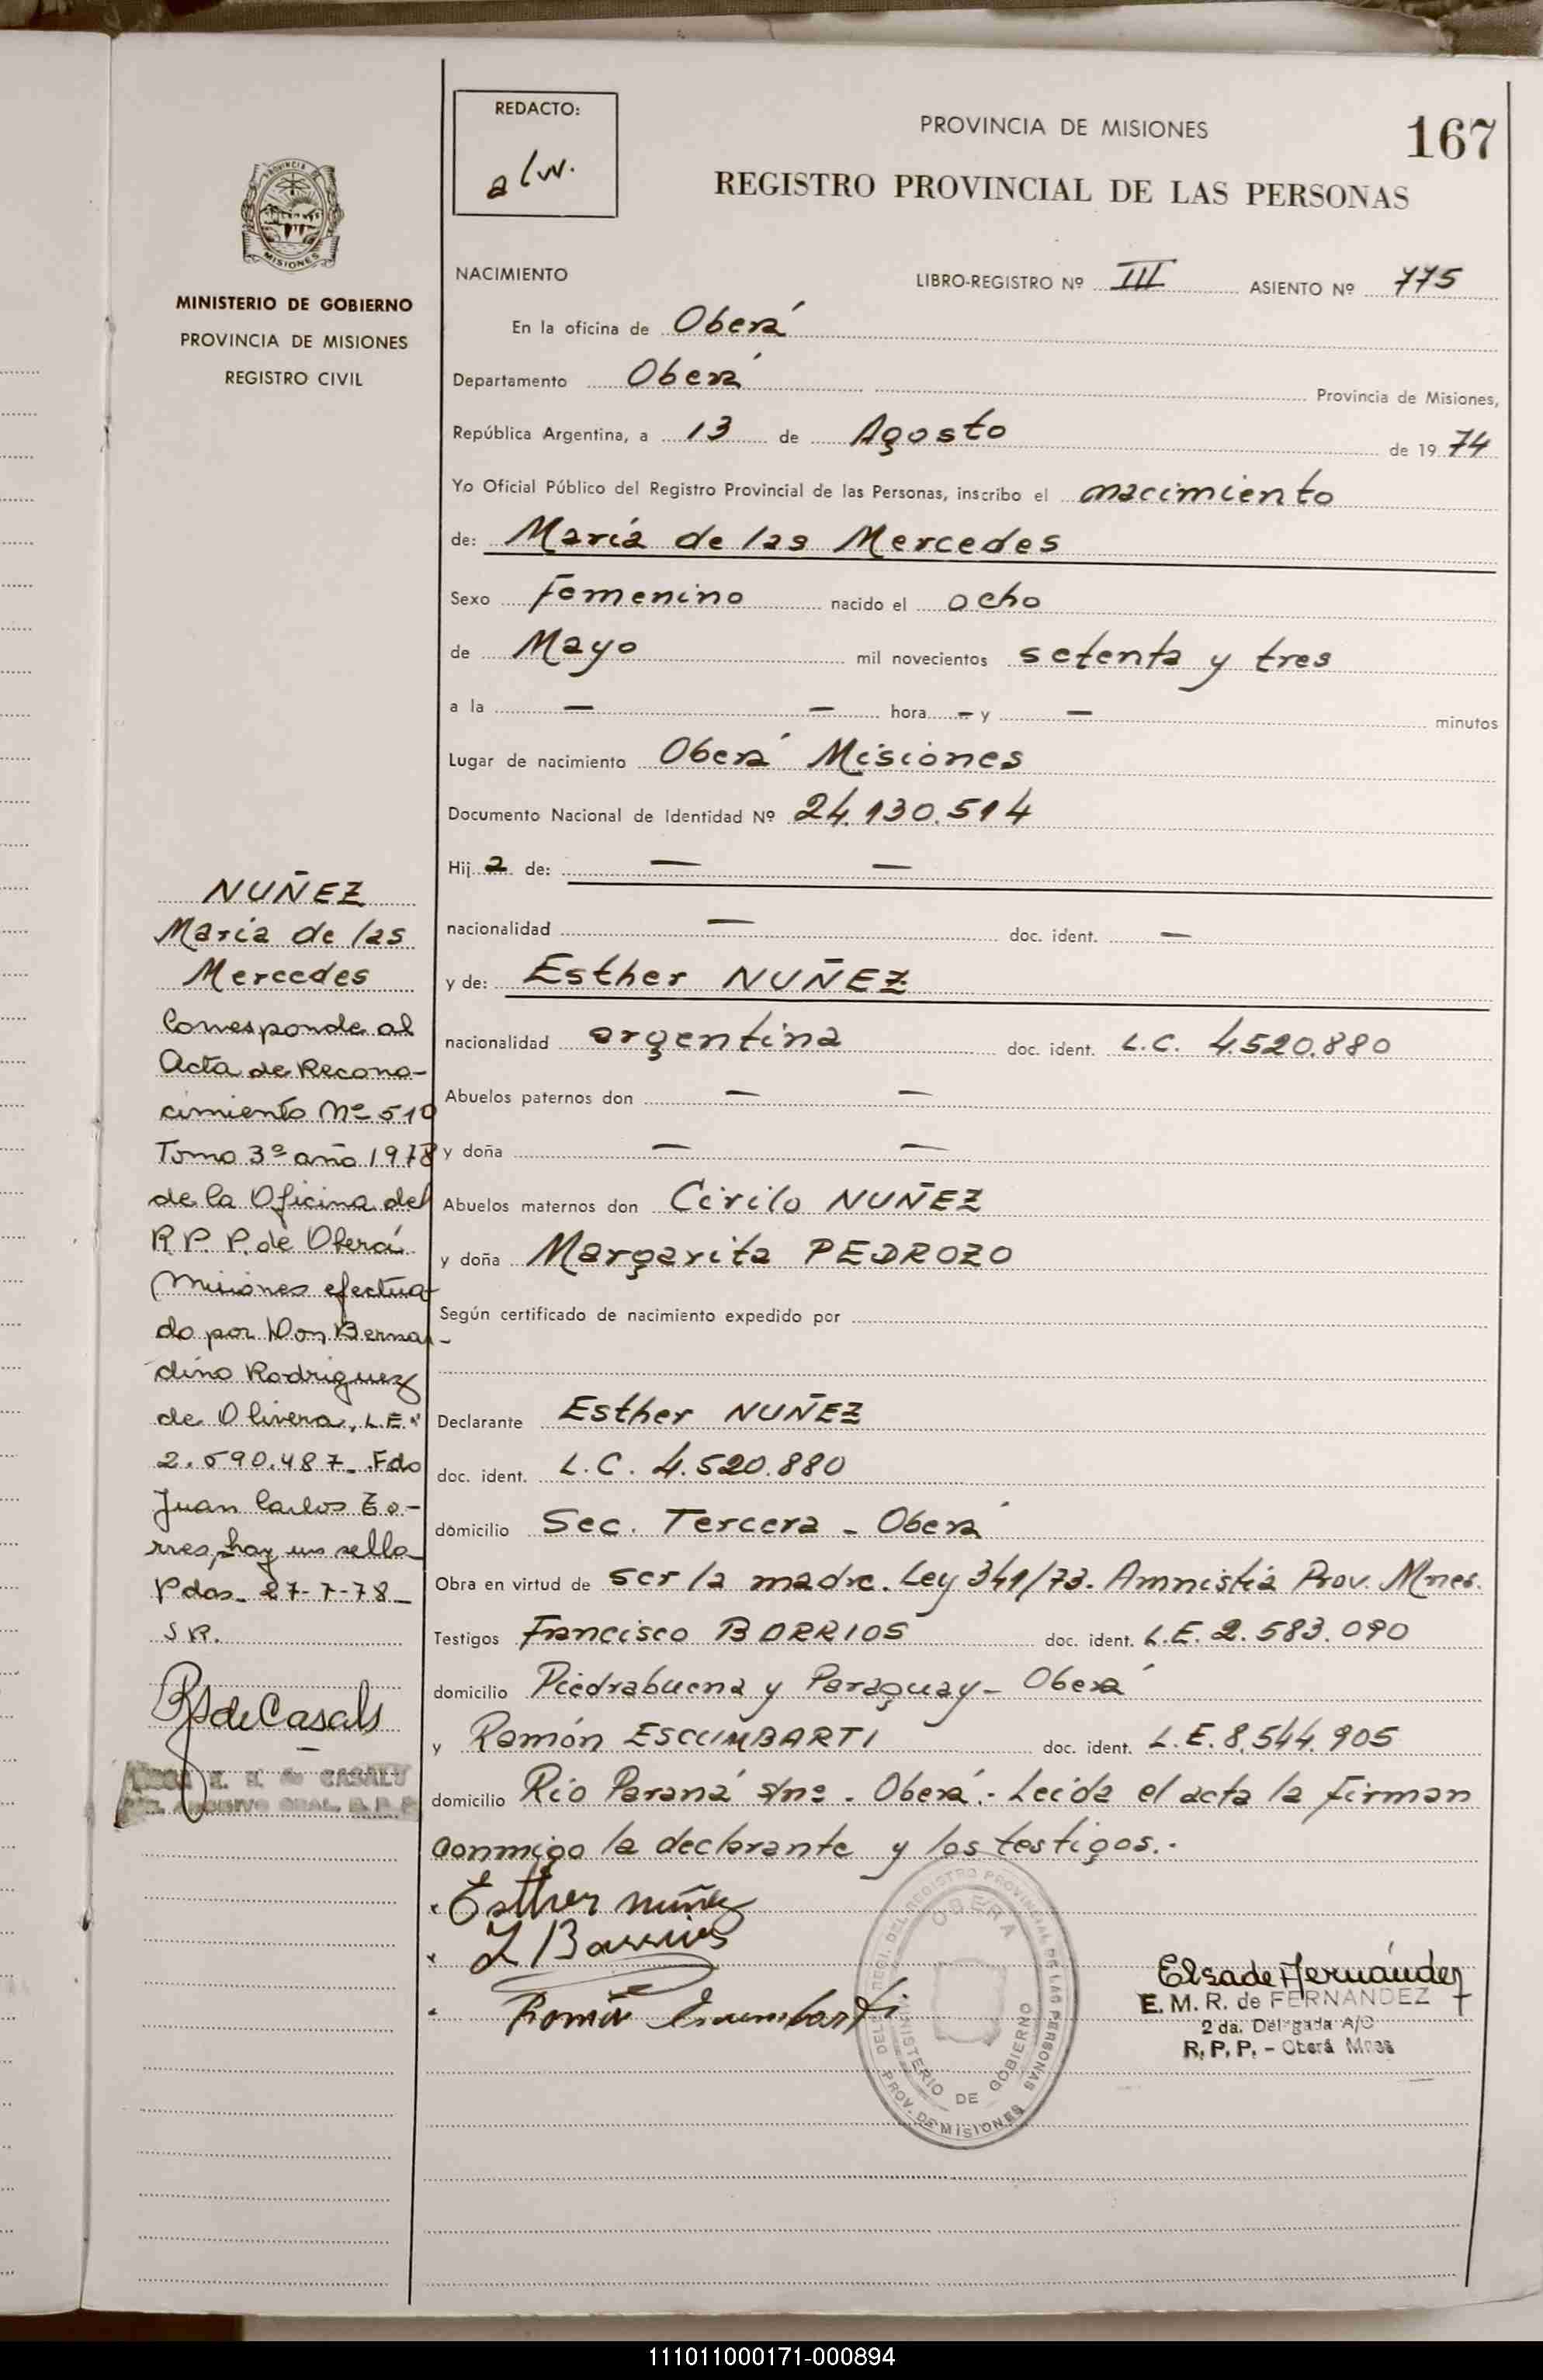 REDACTO:
alw.
PROVINCIA DE MISIONES
167
REGISTRO PROVINCIAL DE LAS PERSONAS
PROVINCIA DE
MISIONES
MINISTERIO DE GOBIERNO
PROVINCIA DE MISIONES
REGISTRO CIVIL
NACIMIENTO LIBRO-REGISTRO Nº III ASIENTO Nº 775
En la oficina de Oberá
Departamento Oberá Provincia de Misiones,
República Argentina, a 13 de Agosto de 1974
Yo Oficial Público del Registro Provincial de las Personas, inscribo el nacimiento
de: María de las Mercedes
Sexo Femenino nacido el ocho
de Mayo mil novecientos setenta y tres
a la — — hora — y — minutos
Lugar de nacimiento Oberá Misiones
Documento Nacional de Identidad Nº 24.130.514
Hija de: — —
nacionalidad — doc. ident. —
y de: Esther NUÑEZ
nacionalidad argentina doc. ident. L.C. 4.520.880
Abuelos paternos don — —
y doña — —
Abuelos maternos don Cirilo NUÑEZ
y doña Margarita PEDROZO
Según certificado de nacimiento expedido por
Declarante Esther NUÑEZ
doc. ident. L.C. 4.520.880
domicilio Sec. Tercera - Oberá
Obra en virtud de ser la madre. Ley 341/73. Amnistia Prov. Mnes.
Testigos Francisco BORRIOS doc. ident. L.E. 2.583.090
domicilio Piedrabuena y Paraguay - Oberá
y Ramón ESCUMBARTI doc. ident. L.E. 8.544.905
domicilio Río Paraná s/nº. Oberá.- Leida el acta la firman
conmigo la declarante y los testigos.-
Esther Nuñez
Barrios
Ramón Escumbarti
OBERA
MINISTERIO DE GOBIERNO
PROV. DE MISIONES
Elsa de Fernández
E. M. R. de FERNANDEZ
2 da. Delegada A/C
R. P. P. - Oberá Mnes
NUÑEZ
Maria de las
Mercedes
Corresponde al
Acta de Recono-
cimiento Nº 510
Tomo 3º año 1978
de la Oficina del
R.P.P. de Oberá
Misiones efectua-
do por Don Bernar-
dino Rodriguez
de Olivera, L.E.
2.590.487. Fdo
Juan Carlos To-
rres, hay un sello
Pdas. 27-7-78-
S.R.
de Casals
111011000171-000894